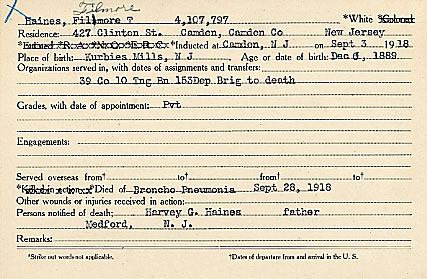 Filmore
Haines, Filmore T 4,107,797 *White *Colored
Residence: 427 Clinton St. Camden, Camden Co New Jersey
*Enlisted *R.A. *N.G. *E.R.C. *Inducted at Camden, N J on Sept 3 1918
Place of birth: Kurbies Mills, N J Age or date of birth: Dec 6, 1889
Organizations served in, with dates of assignments and transfers:
39 Co 10 Tng Bn 153Dep Brig to death
Grades, with date of appointment: Pvt
Engagements:
Served overseas from† to† from† to†
*Killed in action *Died of Broncho Pneumonia Sept 28, 1918
Other wounds or injuries received in action:
Persons notified of death: Harvey G. Haines father
Medford, N. J.
Remarks:
*Strike out words not applicable. †Dates of departure from and arrival in the U. S.